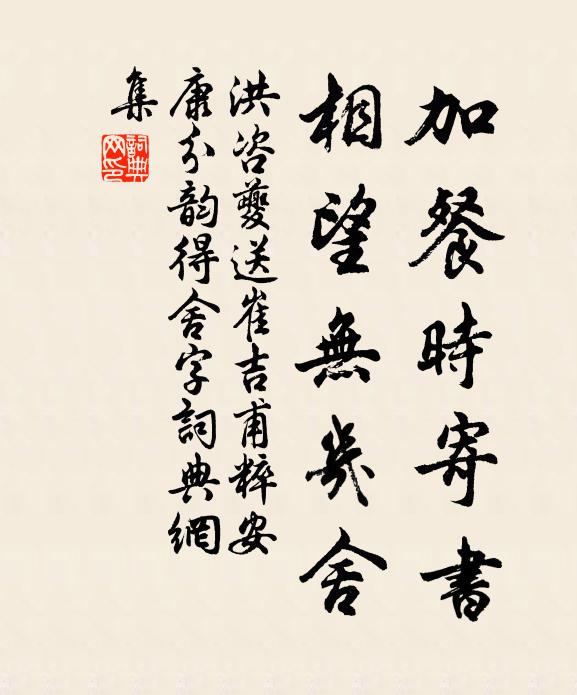 加餐時寄書
相望無幾舍
洪咨夔送崔吉甫粹安
康分韵得舍字詞典網
集
詞典
网印